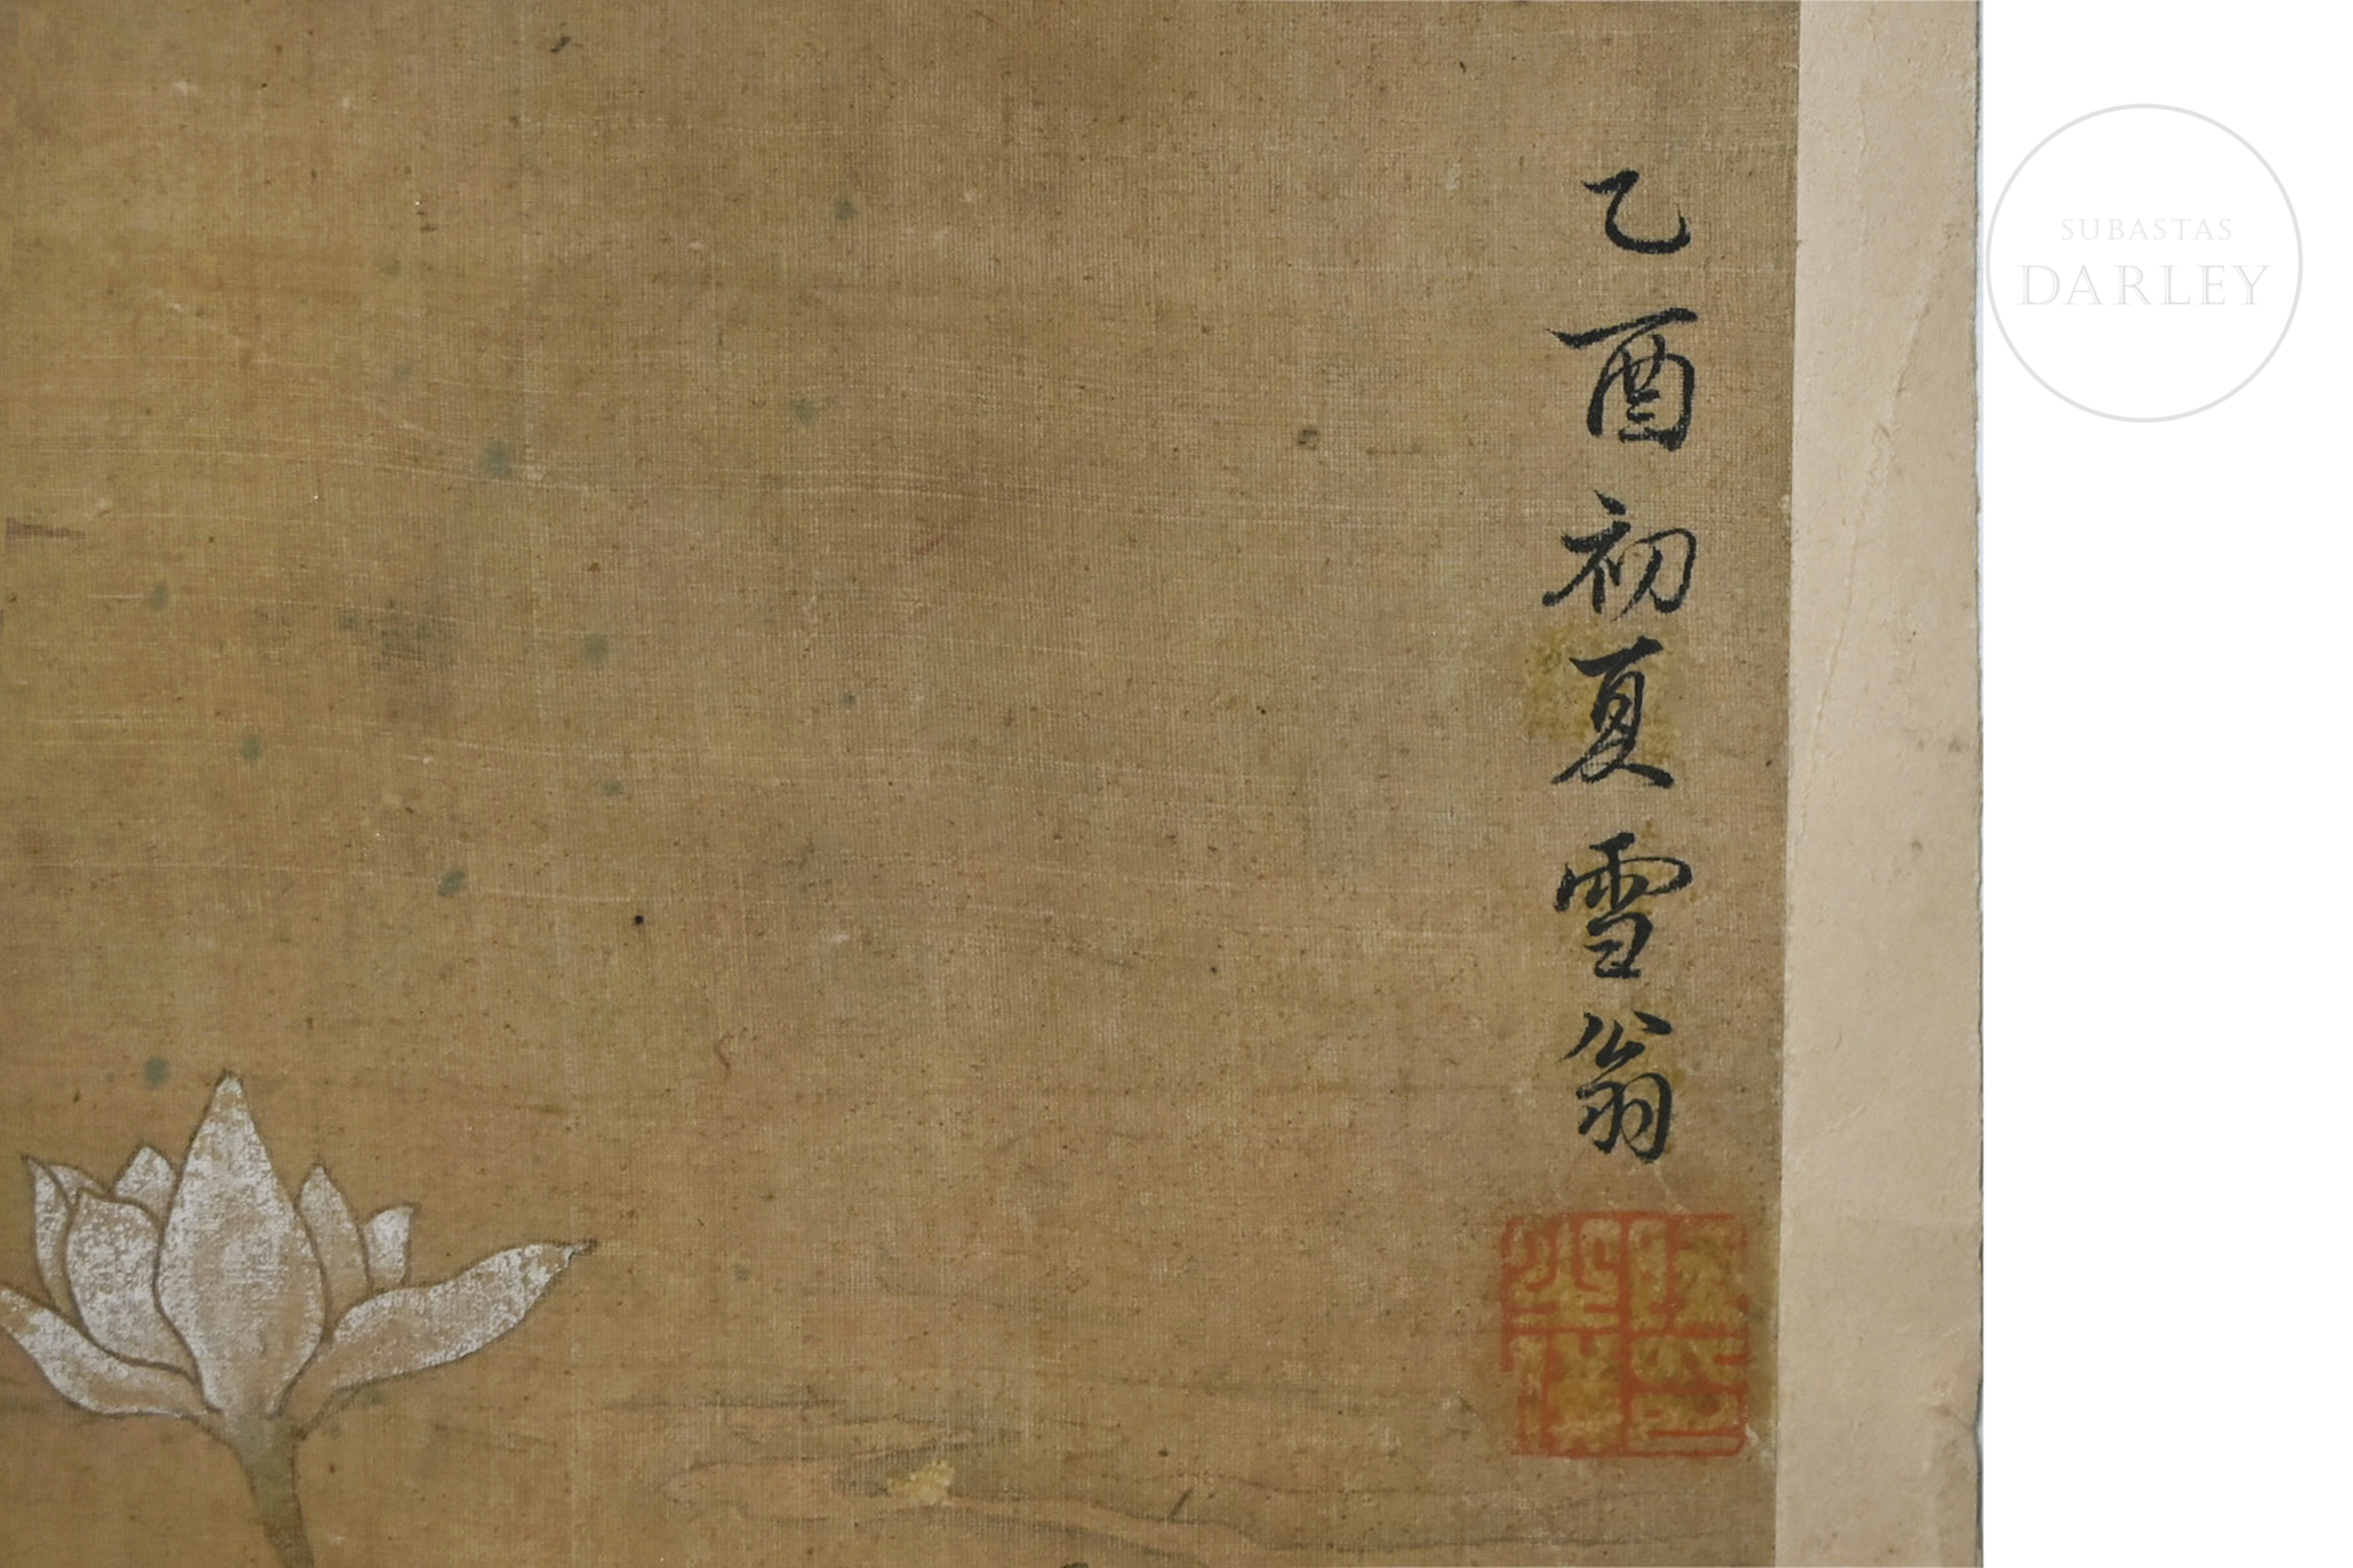 乙酉初夏雪翁
SUBASTAS
DARLEY